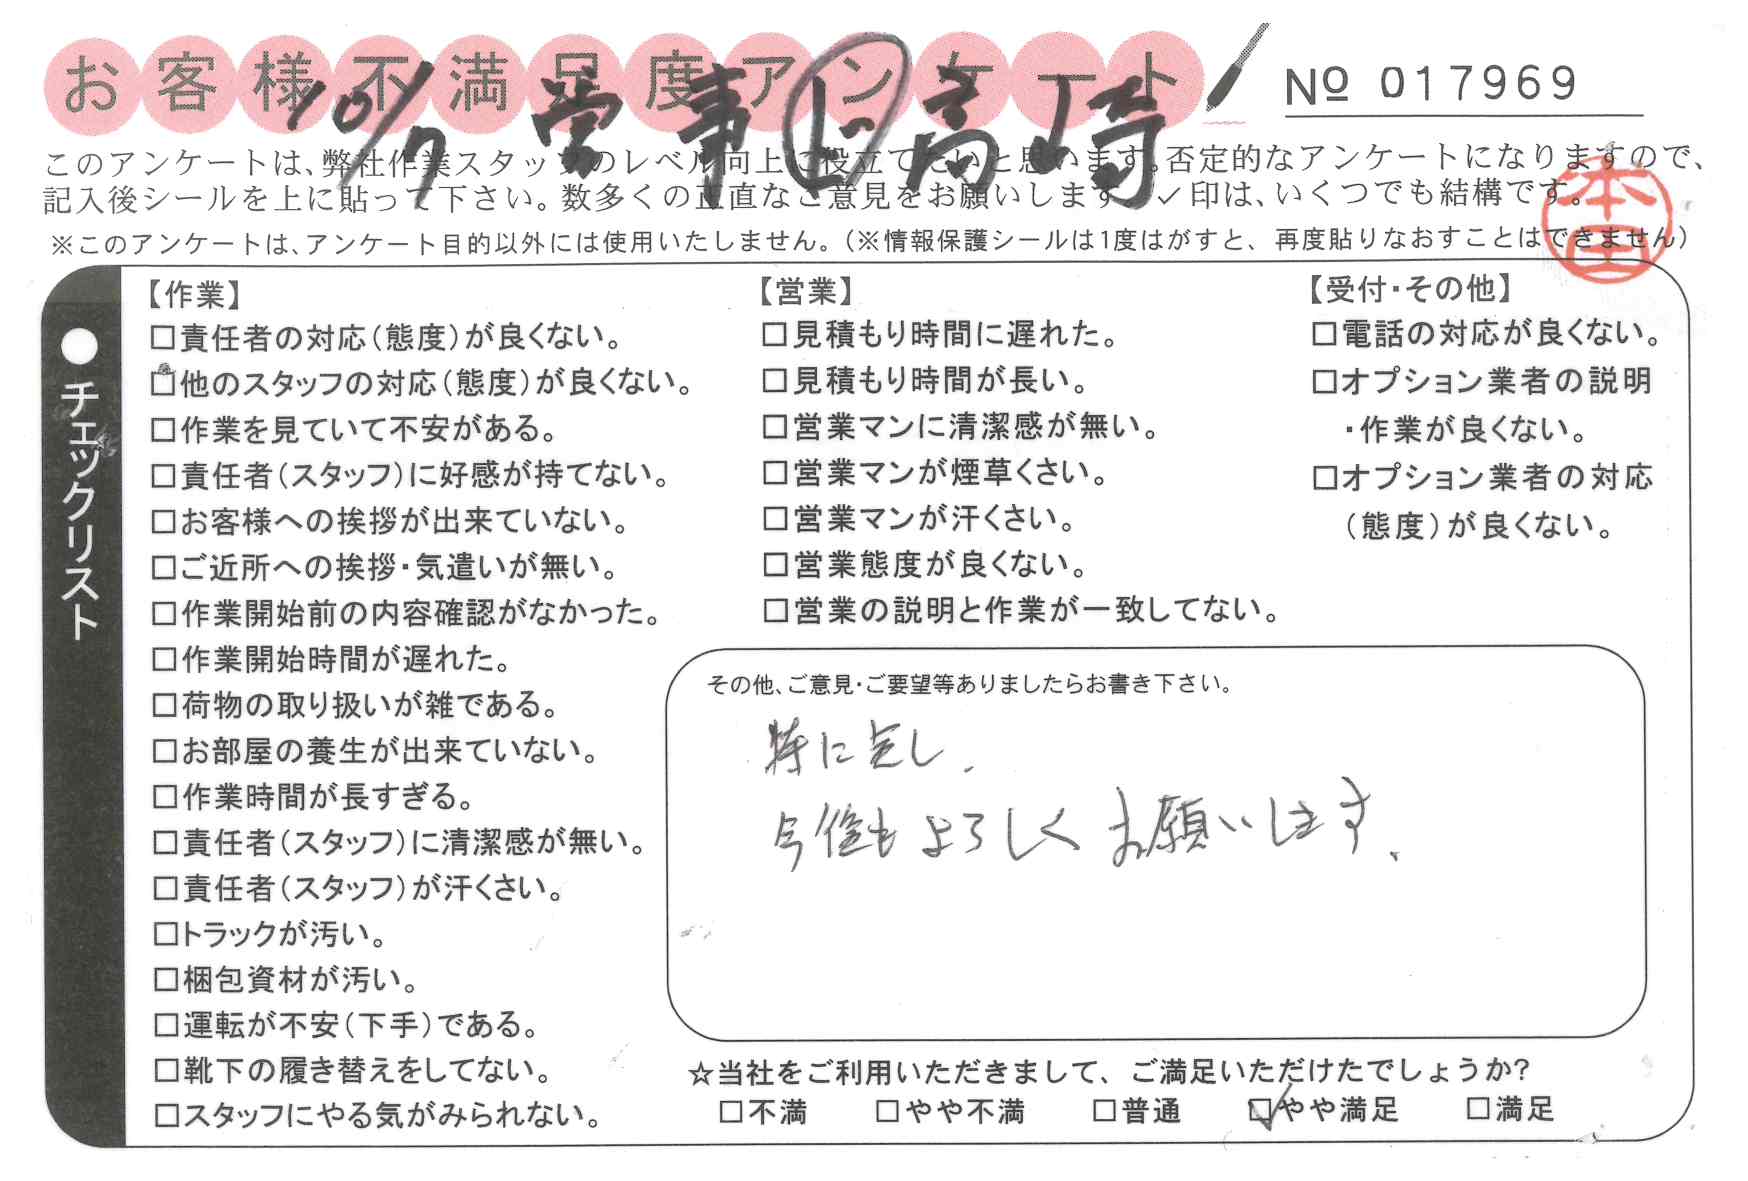 お客様不満足度アンケート
№ 017969
10/7 営 事 ピ 高崎
このアンケートは、弊社作業スタッフのレベル向上に役立てたいと思います。否定的なアンケートになりますので、
記入後シールを上に貼って下さい。数多くの正直なご意見をお願いします。✓印は、いくつでも結構です。
本田
※このアンケートは、アンケート目的以外には使用いたしません。(※情報保護シールは1度はがすと、再度貼りなおすことはできません)
●チェックリスト
【作業】
□責任者の対応(態度)が良くない。
□他のスタッフの対応(態度)が良くない。
□作業を見ていて不安がある。
□責任者(スタッフ)に好感が持てない。
□お客様への挨拶が出来ていない。
□ご近所への挨拶・気遣いが無い。
□作業開始前の内容確認がなかった。
□作業開始時間が遅れた。
□荷物の取り扱いが雑である。
□お部屋の養生が出来ていない。
□作業時間が長すぎる。
□責任者(スタッフ)に清潔感が無い。
□責任者(スタッフ)が汗くさい。
□トラックが汚い。
□梱包資材が汚い。
□運転が不安(下手)である。
□靴下の履き替えをしてない。
□スタッフにやる気がみられない。
【営業】
□見積もり時間に遅れた。
□見積もり時間が長い。
□営業マンに清潔感が無い。
□営業マンが煙草くさい。
□営業マンが汗くさい。
□営業態度が良くない。
□営業の説明と作業が一致してない。
【受付・その他】
□電話の対応が良くない。
□オプション業者の説明
・作業が良くない。
□オプション業者の対応
(態度)が良くない。
その他、ご意見・ご要望等ありましたらお書き下さい。
特に無し.
今後もよろしくお願いします.
☆当社をご利用いただきまして、ご満足いただけたでしょうか?
□不満 □やや不満 □普通 ☑やや満足 □満足